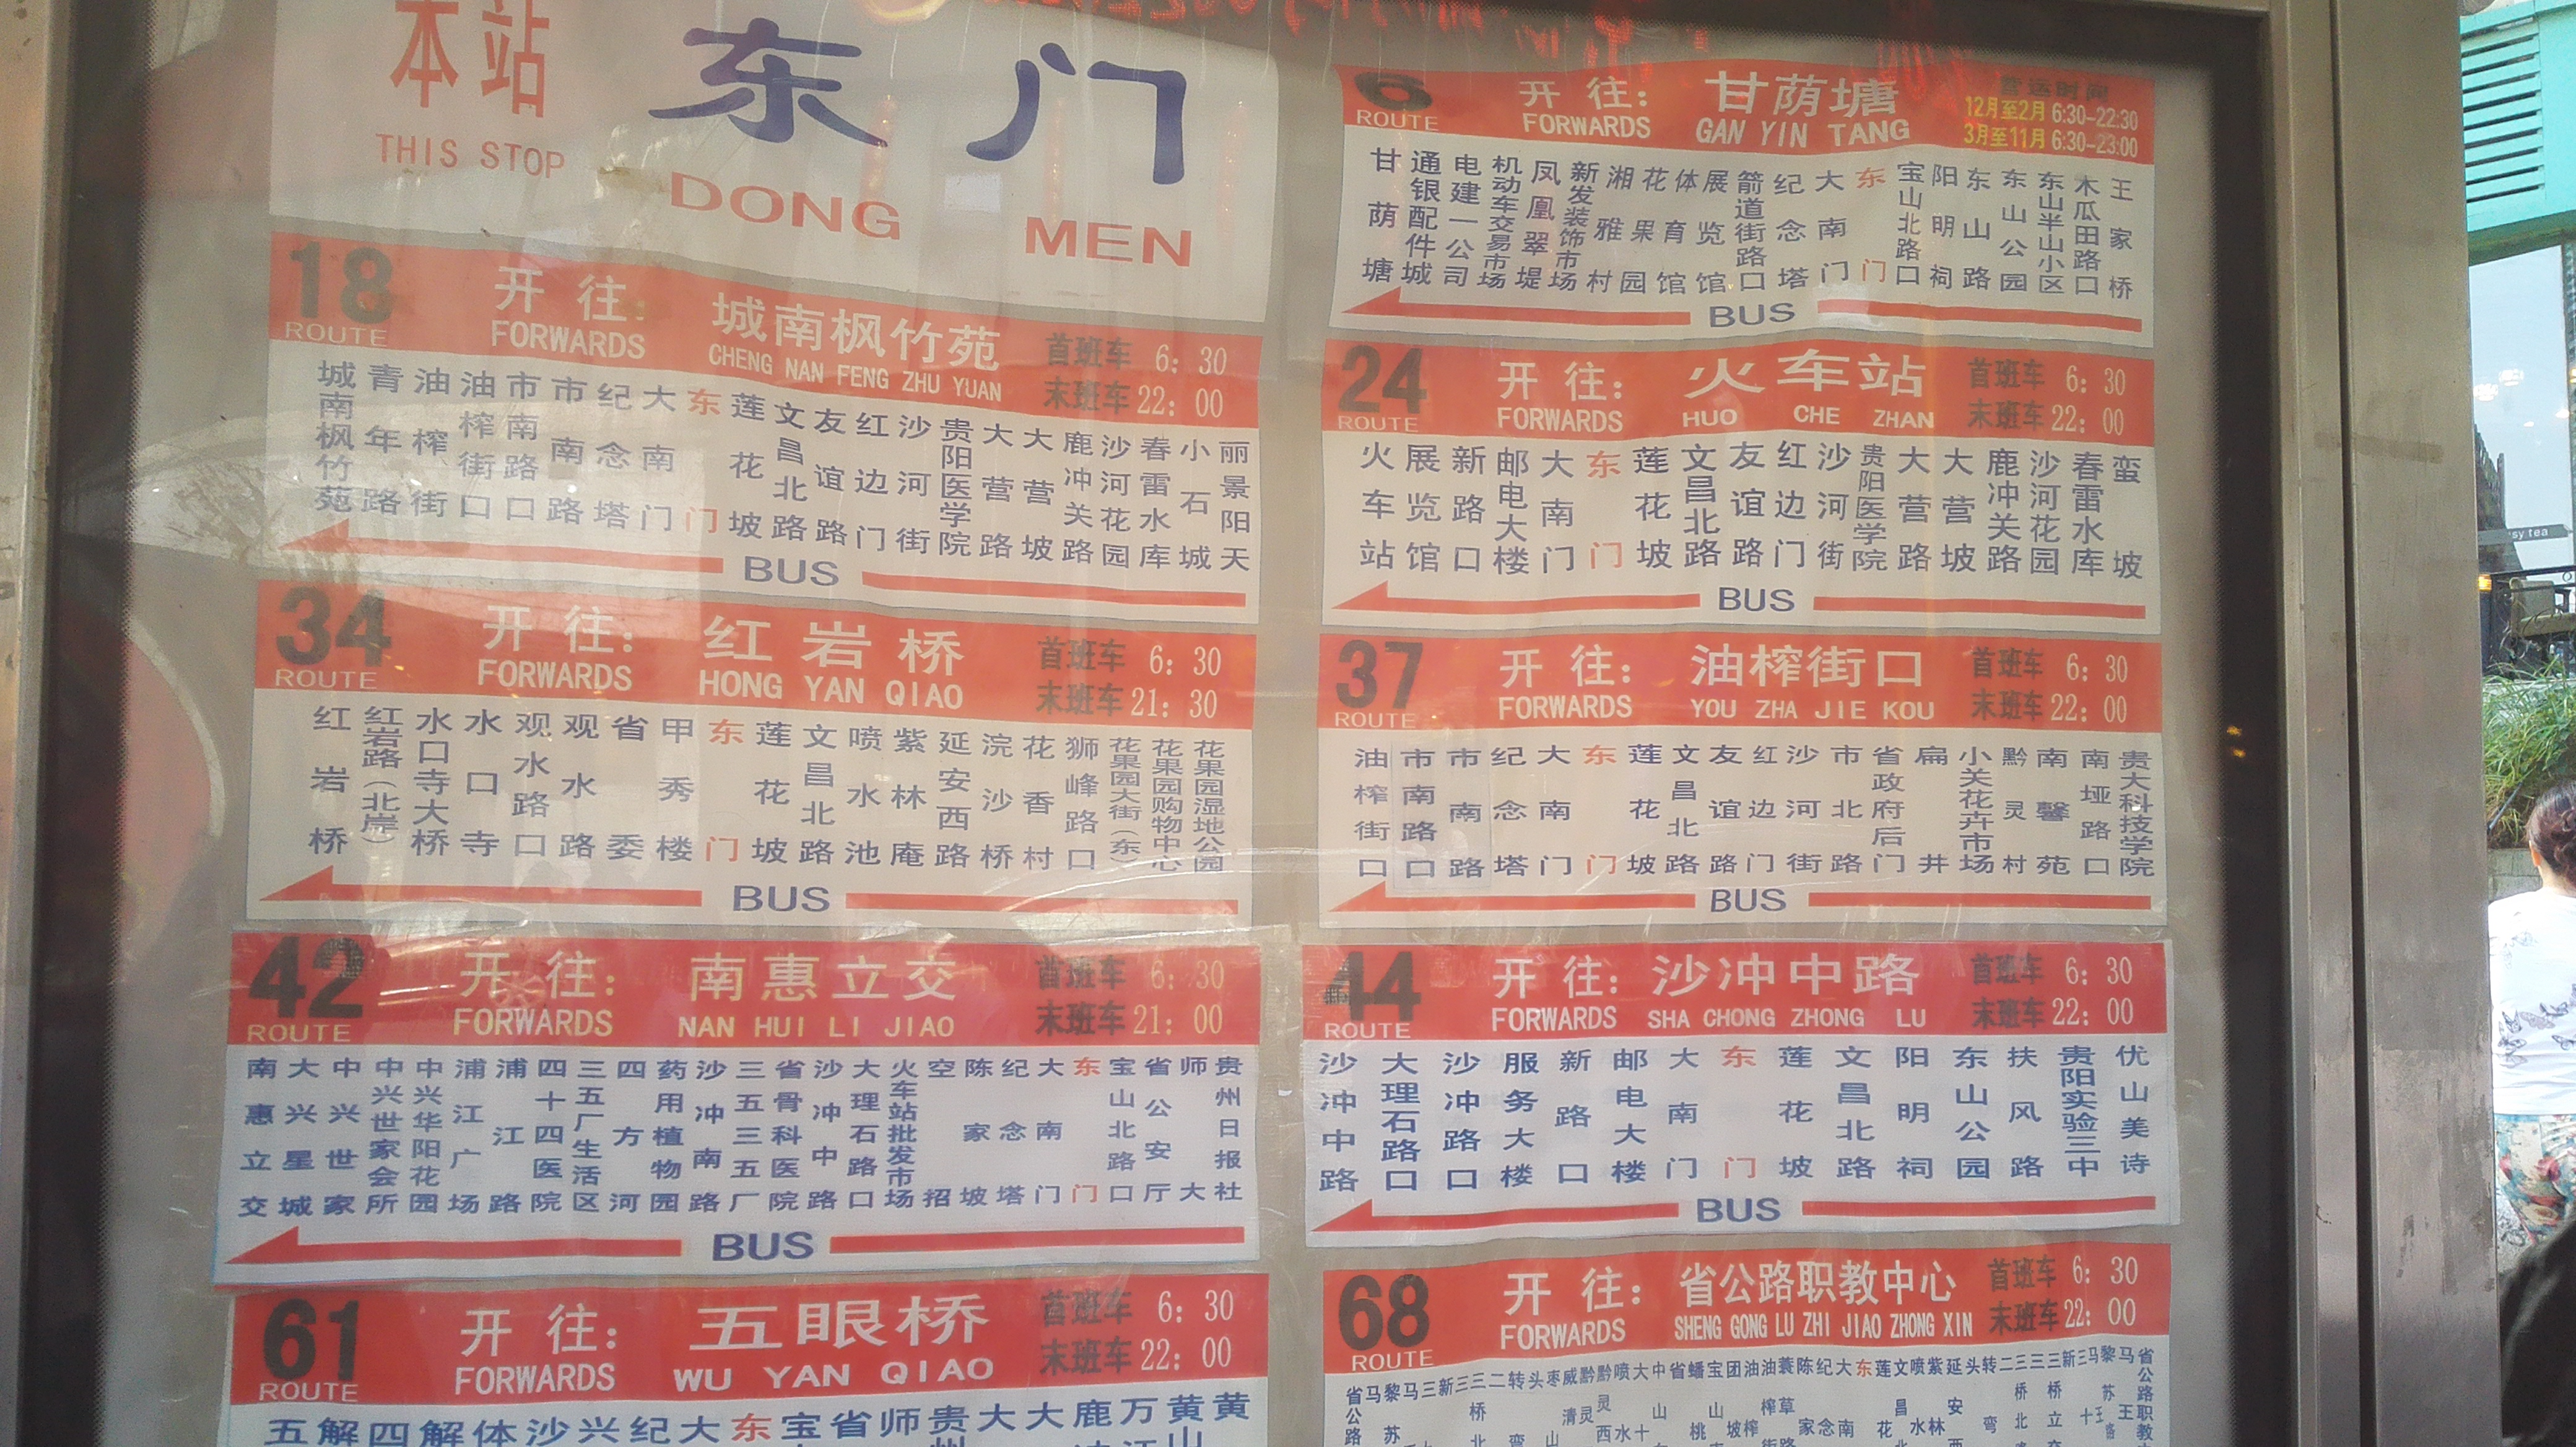 本站
THIS STOP
东门
DONG MEN
18
ROUTE
开往:
FORWARDS
城南枫竹苑
CHENG NAN FENG ZHU YUAN
首班车 6:30
末班车 22:00
城南枫竹苑
青年路
油榨街
油榨街口
市南路口
市南路
纪念塔
大南门
东门
莲花坡
文昌北路
友谊路
红边门
沙河街
贵阳医学院
大营路
大营坡
鹿冲关路
沙河花园
春雷水库
小石城
丽景阳天
BUS
34
ROUTE
开往:
FORWARDS
红岩桥
HONG YAN QIAO
首班车 6:30
末班车 21:30
红岩桥
红岩路(北岸)
水口寺大桥
水口寺
观水路口
观水路
省委
甲秀楼
东门
莲花坡
文昌北路
喷水池
紫林庵
延安西路
浣沙桥
花香村
狮峰路口
花果园大街(东)
花果园购物中心
花果园湿地公园
BUS
42
ROUTE
开往:
FORWARDS
南惠立交
NAN HUI LI JIAO
首班车 6:30
末班车 21:00
南惠立交
大兴星城
中兴世家
中兴世家会所
中兴华阳花园
浦江广场
浦江路
四十四医院
三五厂生活区
四方河
药用植物园
沙冲南路
三五三五厂
省骨科医院
沙冲中路
大理石路口
火车站批发市场
空招
陈家坡
纪念塔
大南门
东门
宝山北路口
省公安厅
师大
贵州日报社
BUS
61
ROUTE
开往:
FORWARDS
五眼桥
WU YAN QIAO
首班车 6:30
末班车 22:00
五解四解体沙兴纪大东宝省师贵大大鹿万黄黄
6
ROUTE
开往:
FORWARDS
甘荫塘
GAN YIN TANG
营运时间
12月至2月 6:30-22:30
3月至11月 6:30-23:00
甘荫塘
通银配件城
电建一公司
机动车交易市场
凤凰翠堤
新发装饰市场
湘雅村
花果园
体育馆
展览馆
箭道街路口
纪念塔
大南门
东门
宝山北路口
阳明祠
东山路
东山公园
东山半山小区
木瓜田路口
王家桥
BUS
24
ROUTE
开往:
FORWARDS
火车站
HUO CHE ZHAN
首班车 6:30
末班车 22:00
火车站
展览馆
新路口
邮电大楼
大南门
东门
莲花坡
文昌北路
友谊路
红边门
沙河街
贵阳医学院
大营路
大营坡
鹿冲关路
沙河花园
春雷水库
蛮坡
BUS
37
ROUTE
开往:
FORWARDS
油榨街口
YOU ZHA JIE KOU
首班车 6:30
末班车 22:00
油榨街口
市南路口
市南路
纪念塔
大南门
东门
莲花坡
文昌北路
友谊路
红边门
沙河街
市北路
省政府后门
扁井
小关花卉市场
黔灵村
南馨苑
南垭路口
贵大科技学院
BUS
44
ROUTE
开往:
FORWARDS
沙冲中路
SHA CHONG ZHONG LU
首班车 6:30
末班车 22:00
沙冲中路
大理石路口
沙冲路口
服务大楼
新路口
邮电大楼
大南门
东门
莲花坡
文昌北路
阳明祠
东山公园
扶风路
贵阳实验三中
优山美诗
BUS
68
ROUTE
开往:
FORWARDS
省公路职教中心
SHENG GONG LU ZHI JIAO ZHONG XIN
首班车 6:30
末班车 22:00